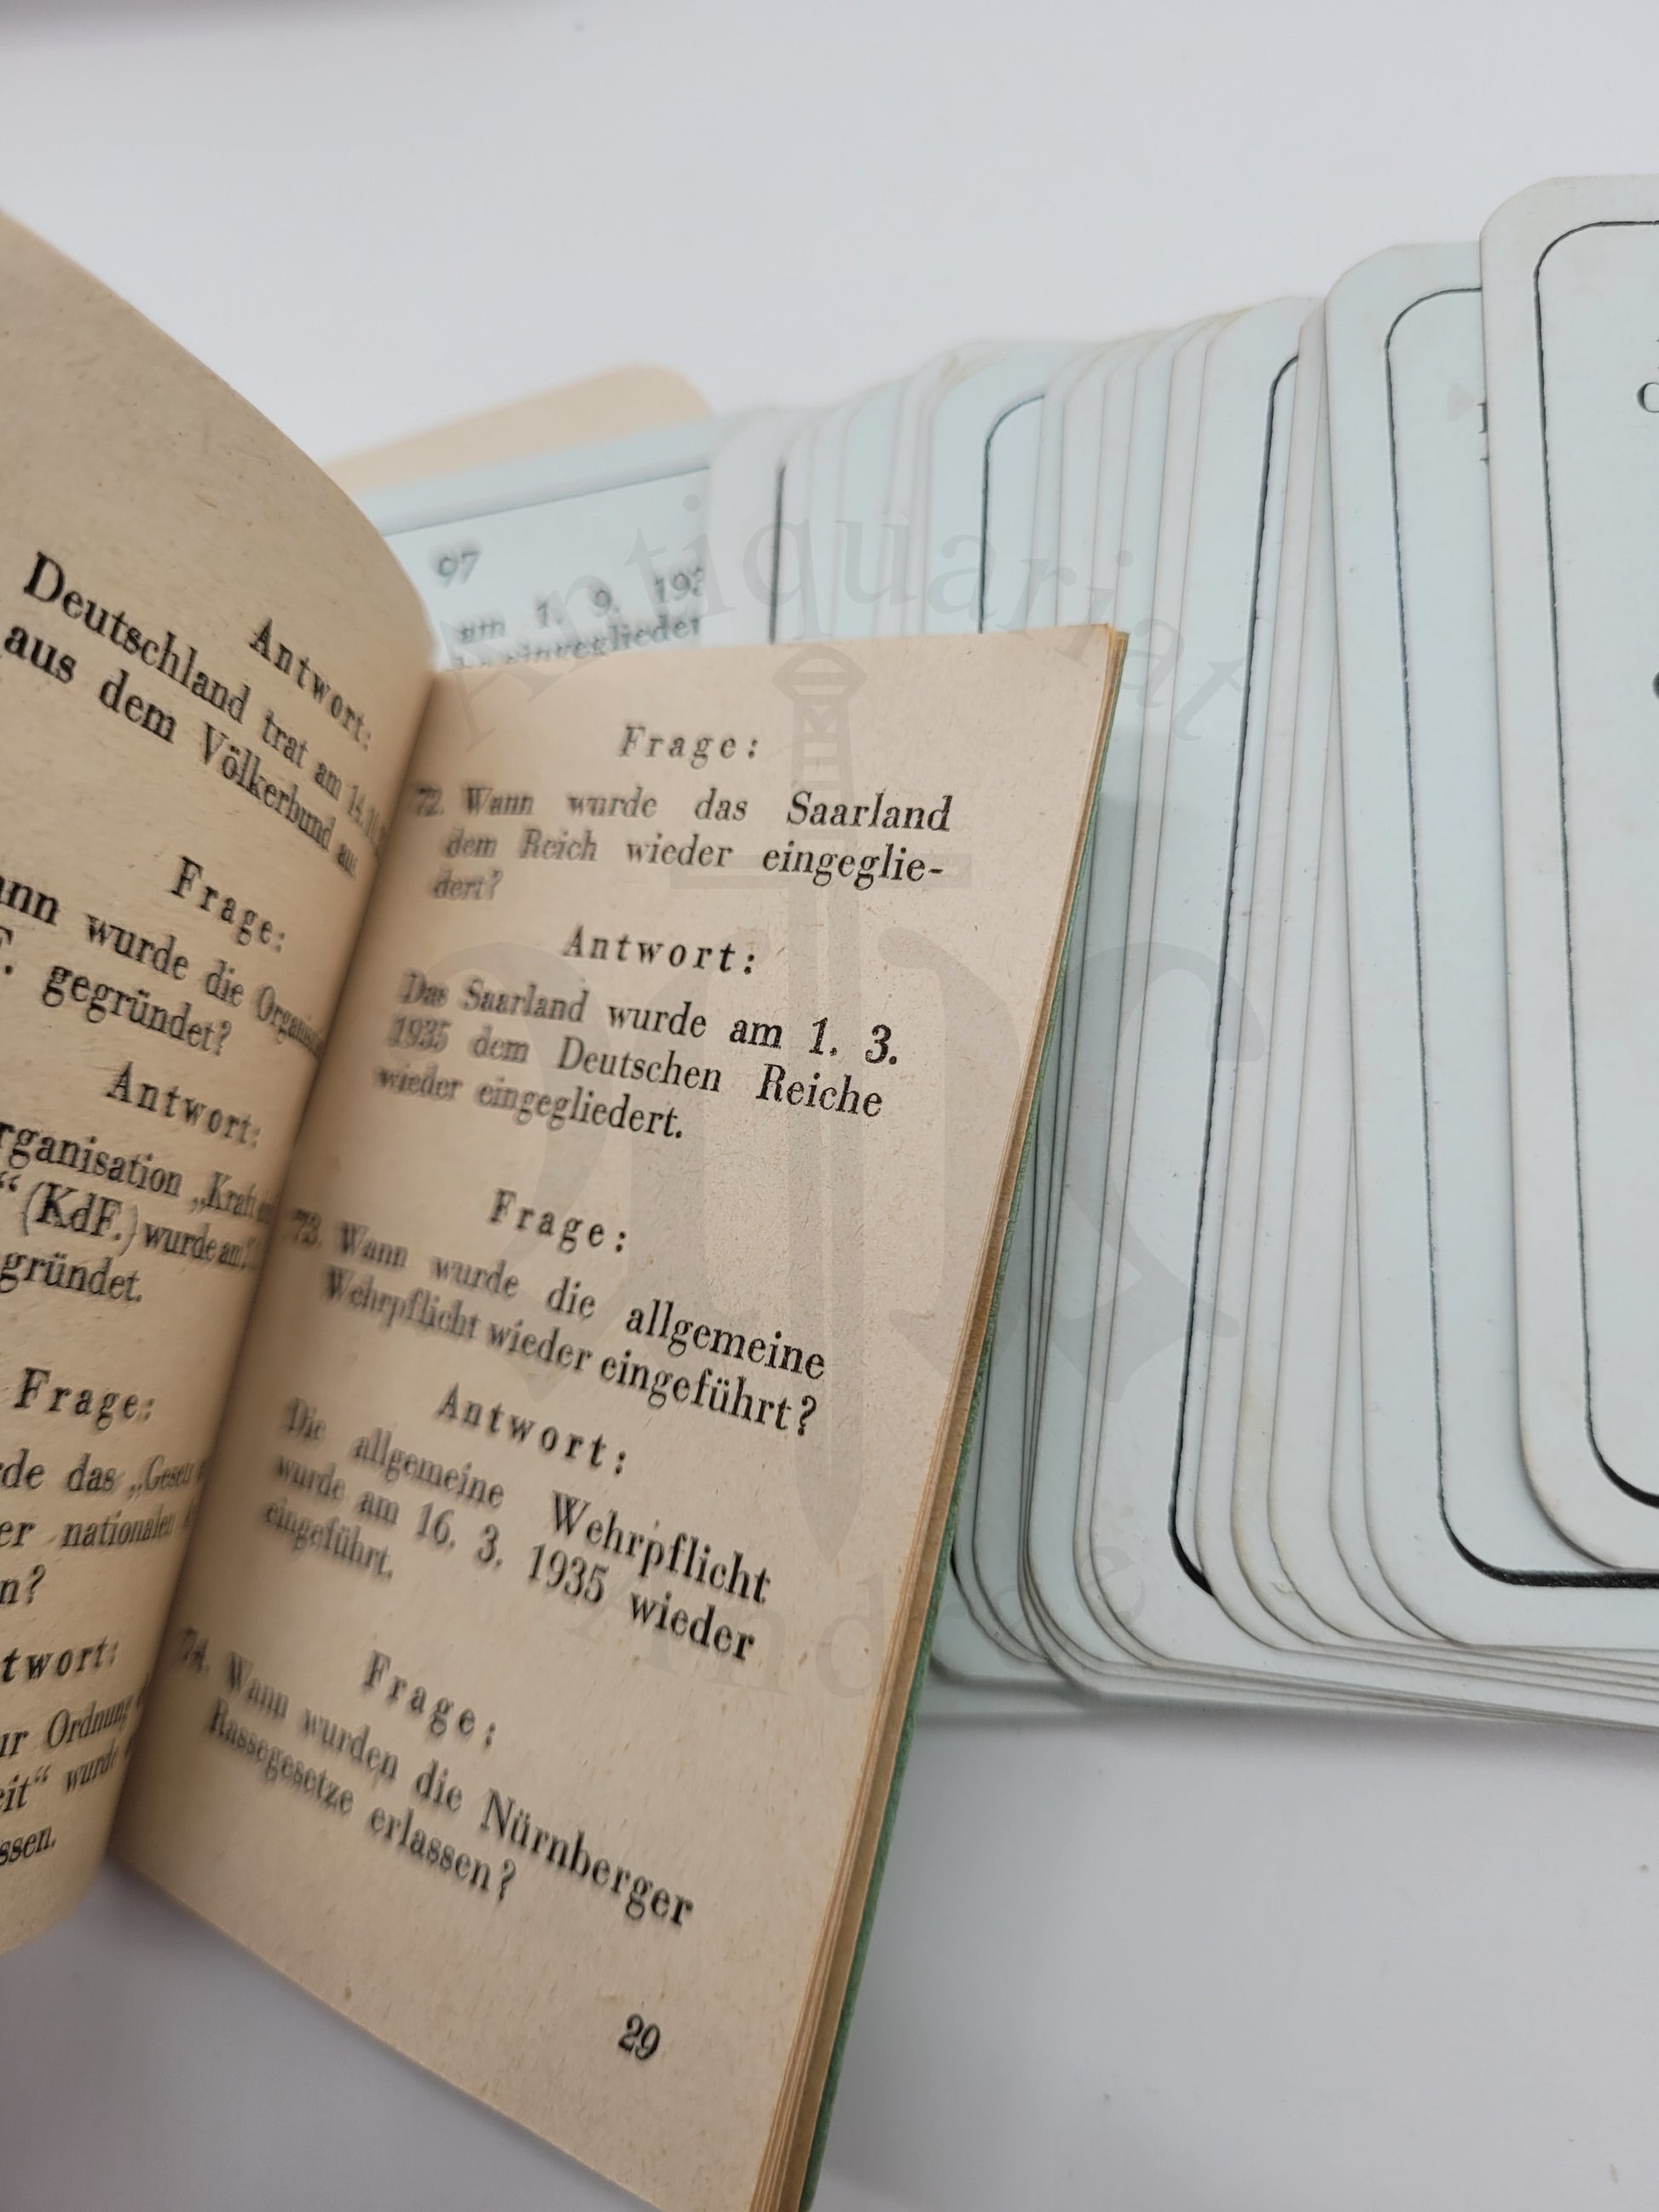 Antwort:
Deutschland trat am 14.10.
aus dem Völkerbund aus
Frage:
wurde die
gegründet?
Antwort:
„Kraft
“ (KdF.) wurde am
gründet.
Frage:
das „Gesetz
nationalen
Antwort:
Ordnung
wurde
97
am 1. 9.
Frage:
72. Wann wurde das Saarland
dem Reich wieder eingeglie-
dert?
Antwort:
Das Saarland wurde am 1. 3.
1935 dem Deutschen Reiche
wieder eingegliedert.
Frage:
73. Wann wurde die allgemeine
Wehrpflicht wieder eingeführt?
Antwort:
Die allgemeine Wehrpflicht
wurde am 16. 3. 1935 wieder
eingeführt.
Frage:
74. Wann wurden die Nürnberger
Rassegesetze erlassen?
29
Antiquariat
Andree